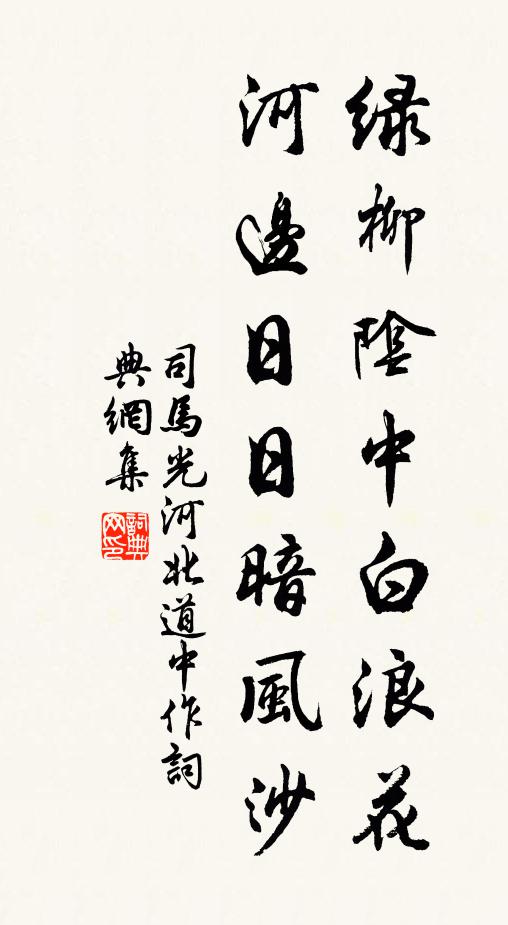 緑柳陰中白浪花
河邊日日暗風沙
司馬光河北道中作詞
典網集
詞典
网印